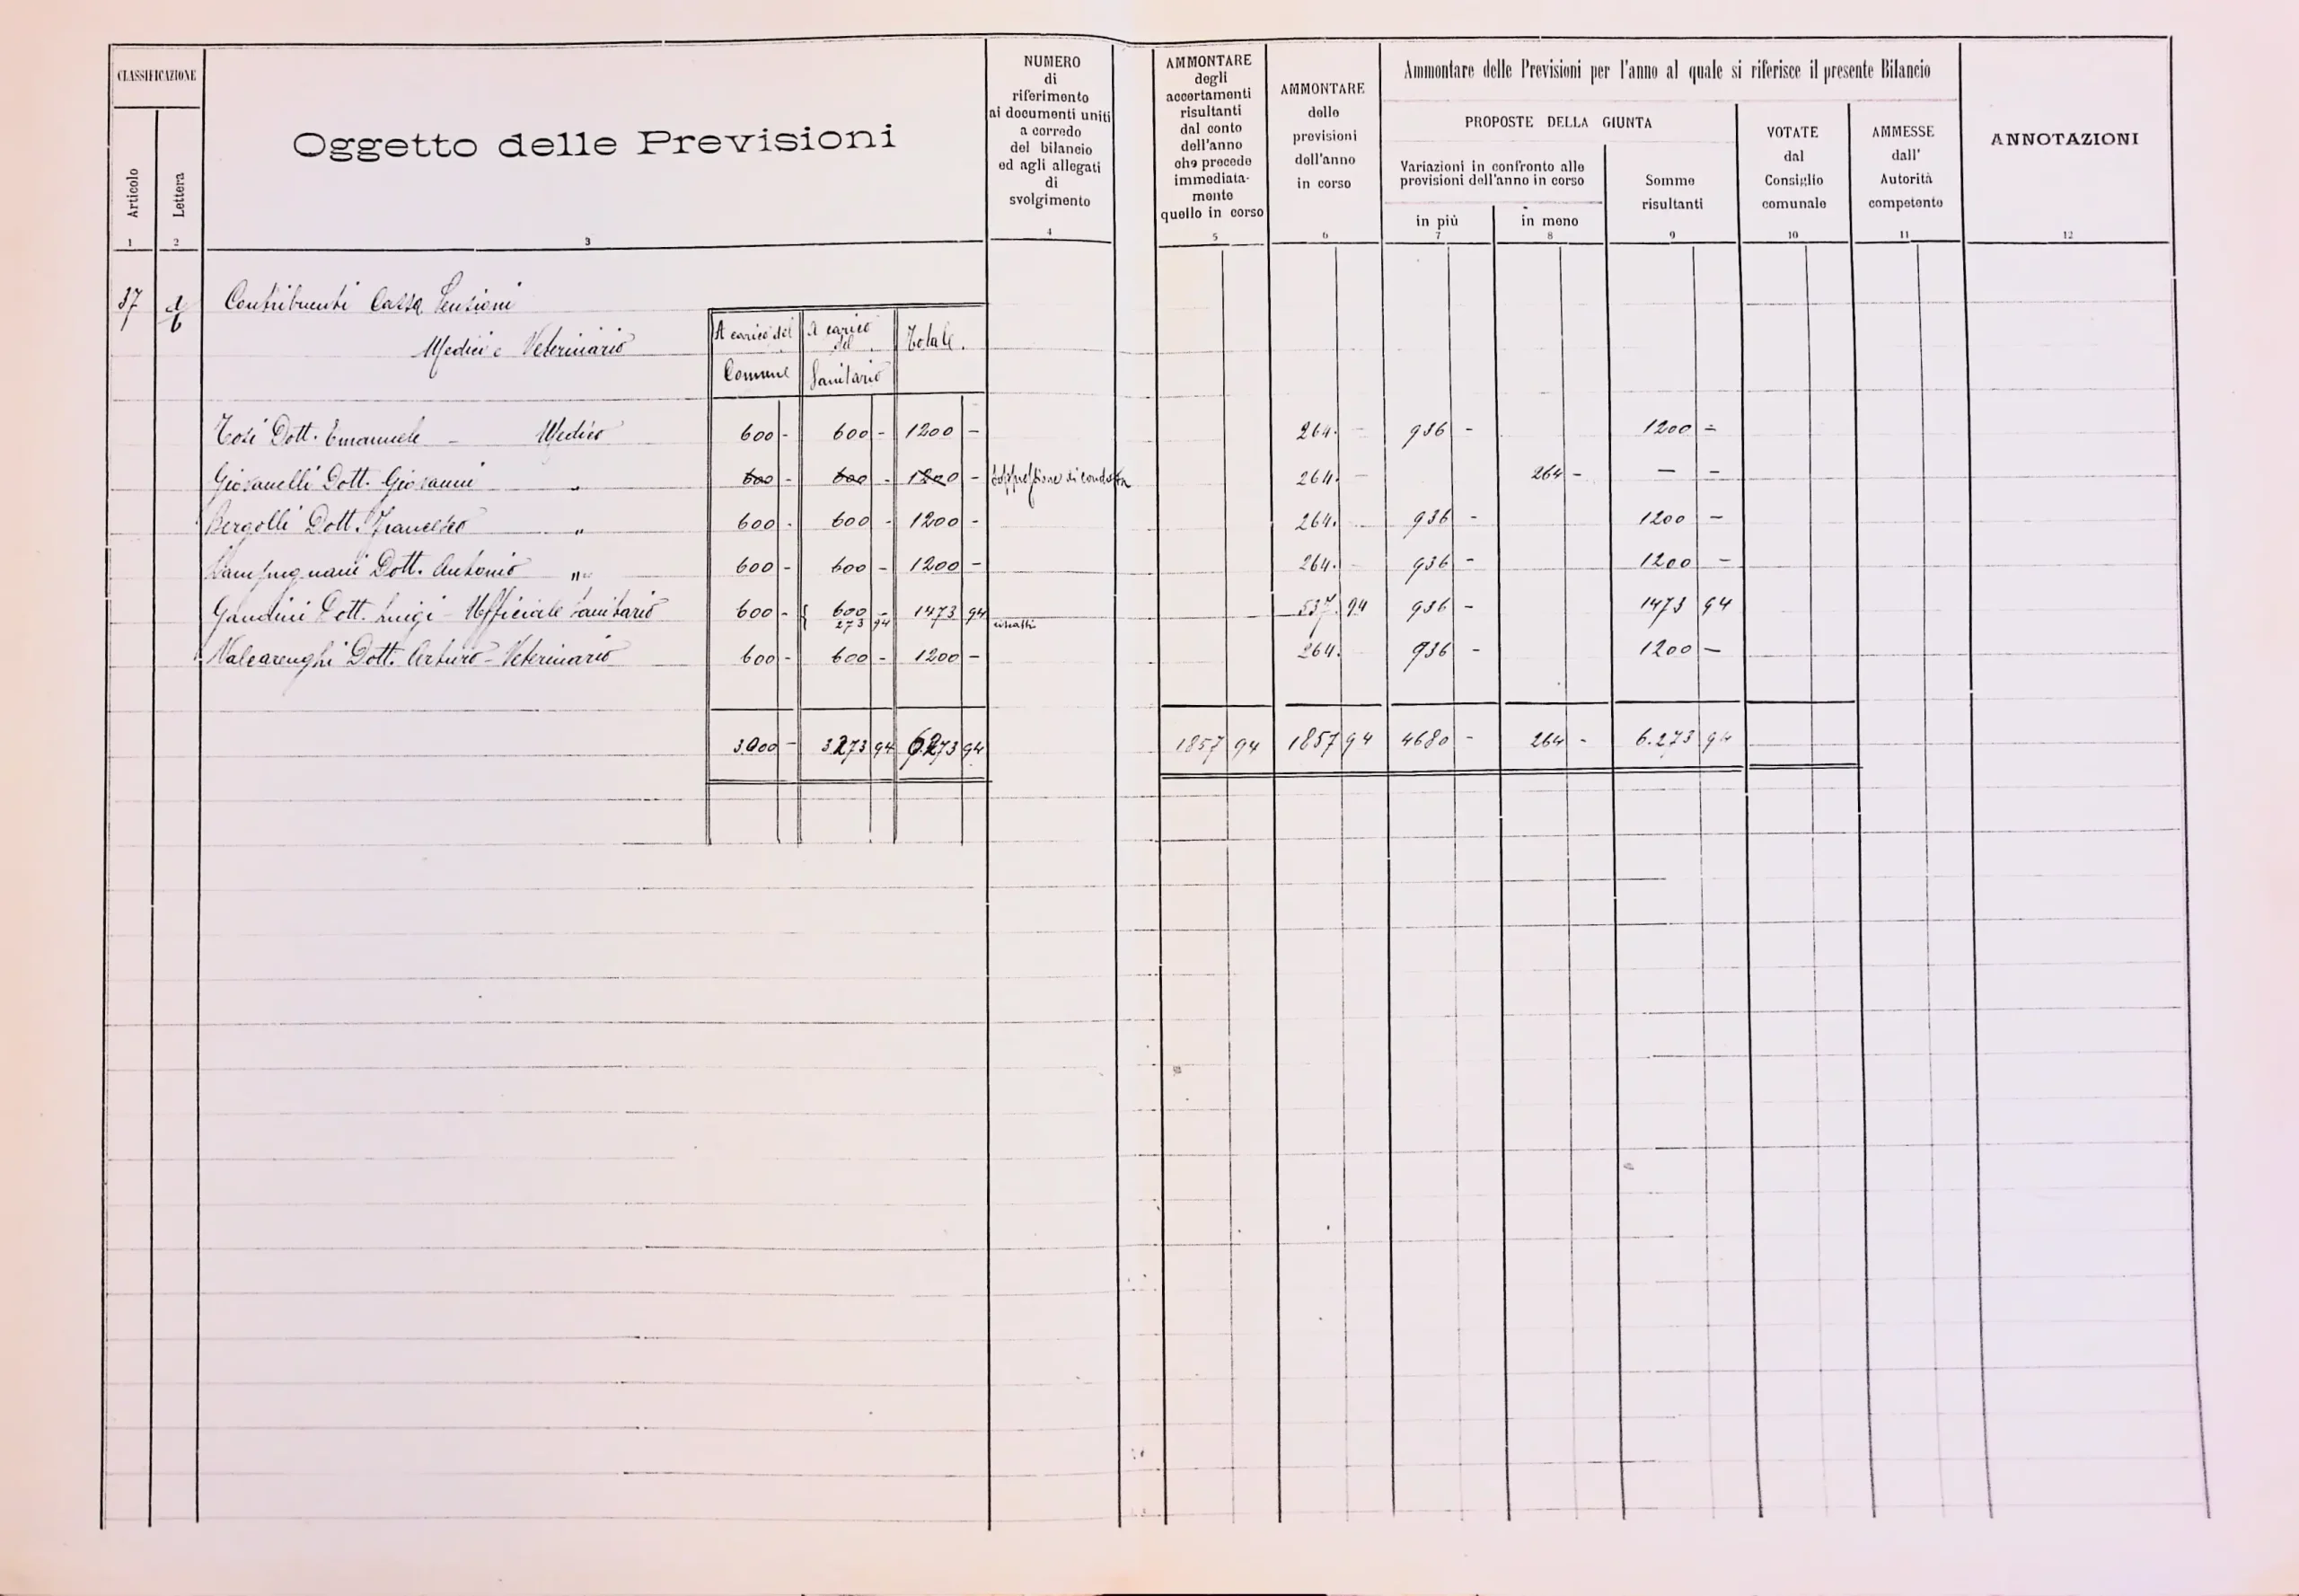 CLASSIFICAZIONE
Articolo
Lettera
Oggetto delle Previsioni
NUMERO
di
riferimento
ai documenti uniti
a corredo
del bilancio
ed agli allegati
di
svolgimento
AMMONTARE
degli
accertamenti
risultanti
dal conto
dell'anno
che precede
immediata-
mente
quello in corso
AMMONTARE
delle
previsioni
dell'anno
in corso
Ammontare delle Previsioni per l'anno al quale si riferisce il presente Bilancio
PROPOSTE DELLA GIUNTA
Variazioni in confronto alle
previsioni dell'anno in corso
in più
in meno
Somme
risultanti
VOTATE
dal
Consiglio
comunale
AMMESSE
dall'
Autorità
competente
ANNOTAZIONI
1 2 3 4 5 6 7 8 9 10 11 12
37 Contributi Cassa Pensioni
Medici e Veterinario
A carico del Comune
A carico del Sanitario
Totale.
Tosi Dott. Emanuele - Medico 600 - 600 - 1200 - 264. - 936 - 1200 -
Giovanelli Dott. Giovanni " 600 - 600 - 1200 - Soppressione di condotta 264. - 264 - - -
Bergolli Dott. Francesco " 600 - 600 - 1200 - 264. - 936 - 1200 -
Dott. Antonio " 600 - 600 - 1200 - 264. - 936 - 1200 -
Gandini Dott. Luigi - Ufficiale Sanitario 600 - { 600 - 1473 94 537 94 936 - 1473 94
273 94 riscatti
Valcarenghi Dott. Arturo - Veterinario 600 - 600 - 1200 - 264. 936 - 1200 -
3000 - 3273 94 6273 94 1857 94 1857 94 4680 - 264 - 6.273 94